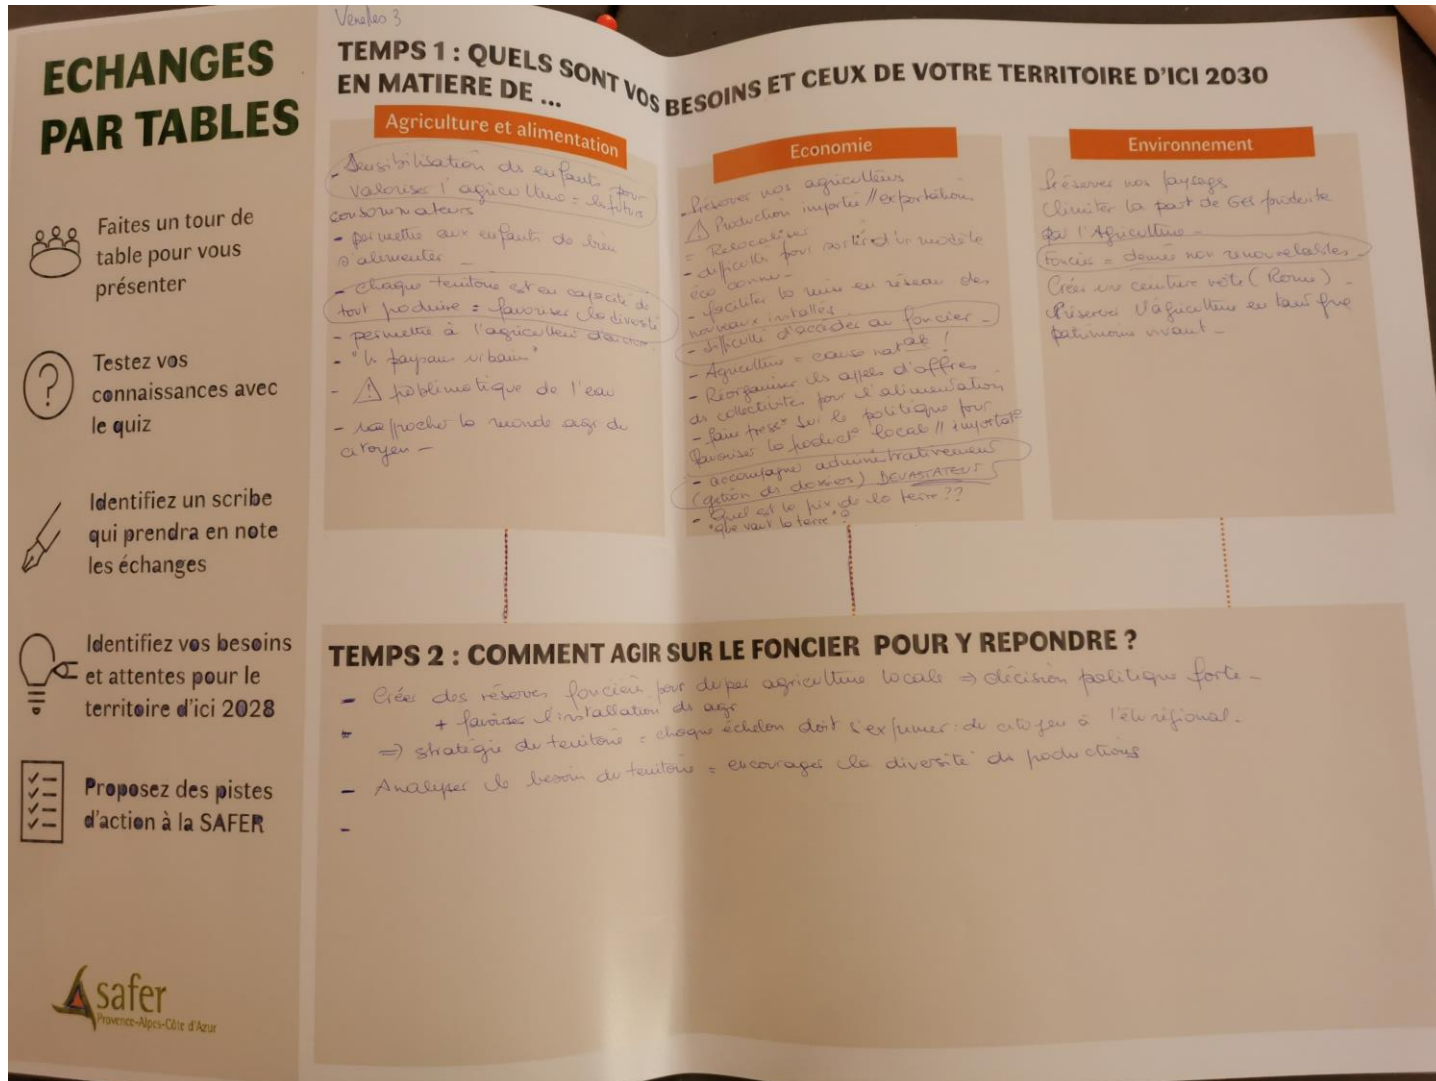 Venelles 3
ECHANGES
PAR TABLES
Faites un tour de
table pour vous
présenter
Testez vos
connaissances avec
le quiz
Identifiez un scribe
qui prendra en note
les échanges
Identifiez vos besoins
et attentes pour le
territoire d'ici 2028
Proposez des pistes
d'action à la SAFER
safer
Provence-Alpes-Côte d'Azur
TEMPS 1 : QUELS SONT VOS BESOINS ET CEUX DE VOTRE TERRITOIRE D'ICI 2030
EN MATIERE DE ...
Agriculture et alimentation
- Sensibilisation des enfants pour
valoriser l'agriculture = les futurs
consommateurs
- permettre aux enfants de bien
s'alimenter -
- chaque territoire est en capacité de
tout produire = favoriser la diversité
- permettre à l'agriculteur
- "les paysans urbains"
- ⚠ problématique de l'eau
- rapprocher le monde agri du
citoyen -
Economie
- Préserver nos agriculteurs
⚠ Production importée // exportations
= Relocaliser
- difficultés pour sortir d'un modèle
éco connu -
- faciliter la mise en réseau des
nouveaux installés.
- difficulté d'accéder au foncier -
- Agriculture = cause natale !
- Réorganiser les appels d'offres
des collectivités pour l'alimentation.
- faire press° sur le politique pour
favoriser la product° locale // importat°
- accompagner administrativement
(gestion des dossiers) DEVASTATEUR
- Quel est le prix de la terre ??
"que vaut la terre" ?
Environnement
Préserver nos paysages
Limiter la part de GES produite
par l'Agriculture -
Foncier = denrée non renouvelables -
Créer une ceinture verte (Rome) -
Préserver l'agriculture en tant que
patrimoine vivant -
TEMPS 2 : COMMENT AGIR SUR LE FONCIER POUR Y REPONDRE ?
- Créer des réserves foncières pour agriculture locale => décision politique forte -
+ favoriser l'installation des agri
=> stratégie du territoire = chaque échelon doit s'exprimer : du citoyen à l'élu régional -
- Analyser le besoin du territoire = encourager la diversité des productions
-